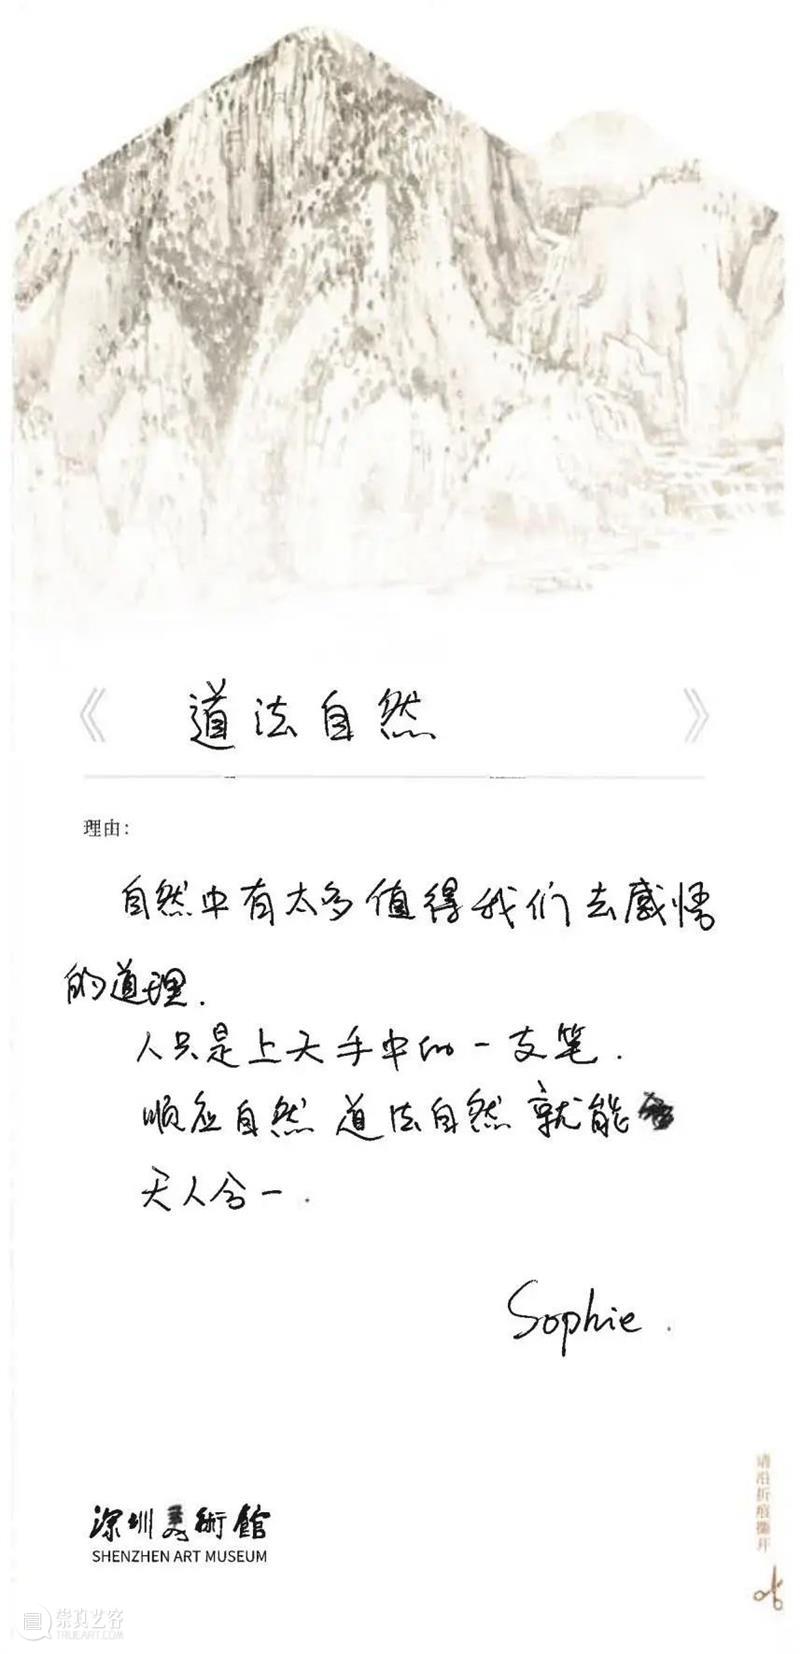 《 道法自然 》
理由：
自然中有太多值得我们去感悟
的道理.
人只是上天手中的一支笔.
顺应自然 道法自然 就能
天人合一.
Sophie.
深圳美術館
SHENZHEN ART MUSEUM
请沿折痕撕开
崇真艺客
TRUEART.COM